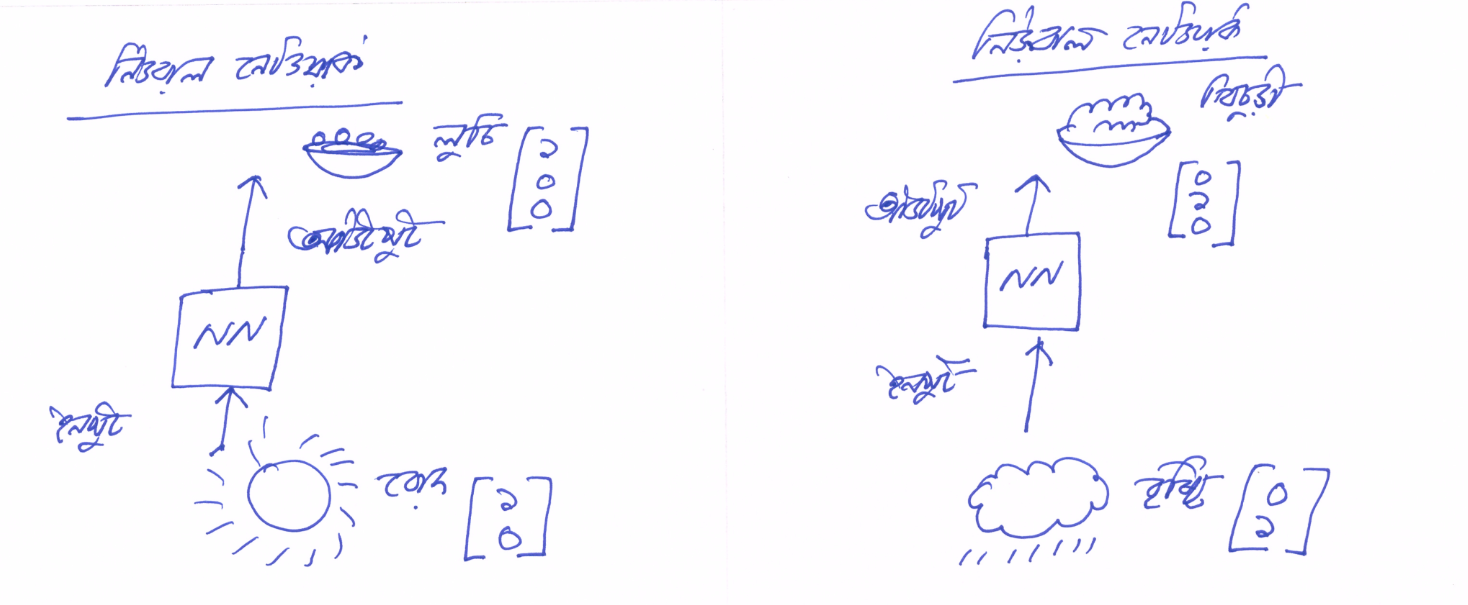 নিউরাল নেটওয়ার্ক
লুচি
১
০
০
আউটপুট
NN
ইনপুট
রোদ
১
০
নিউরাল নেটওয়ার্ক
খিচুড়ী
০
১
০
আউটপুট
NN
ইনপুট
বৃষ্টি
০
১